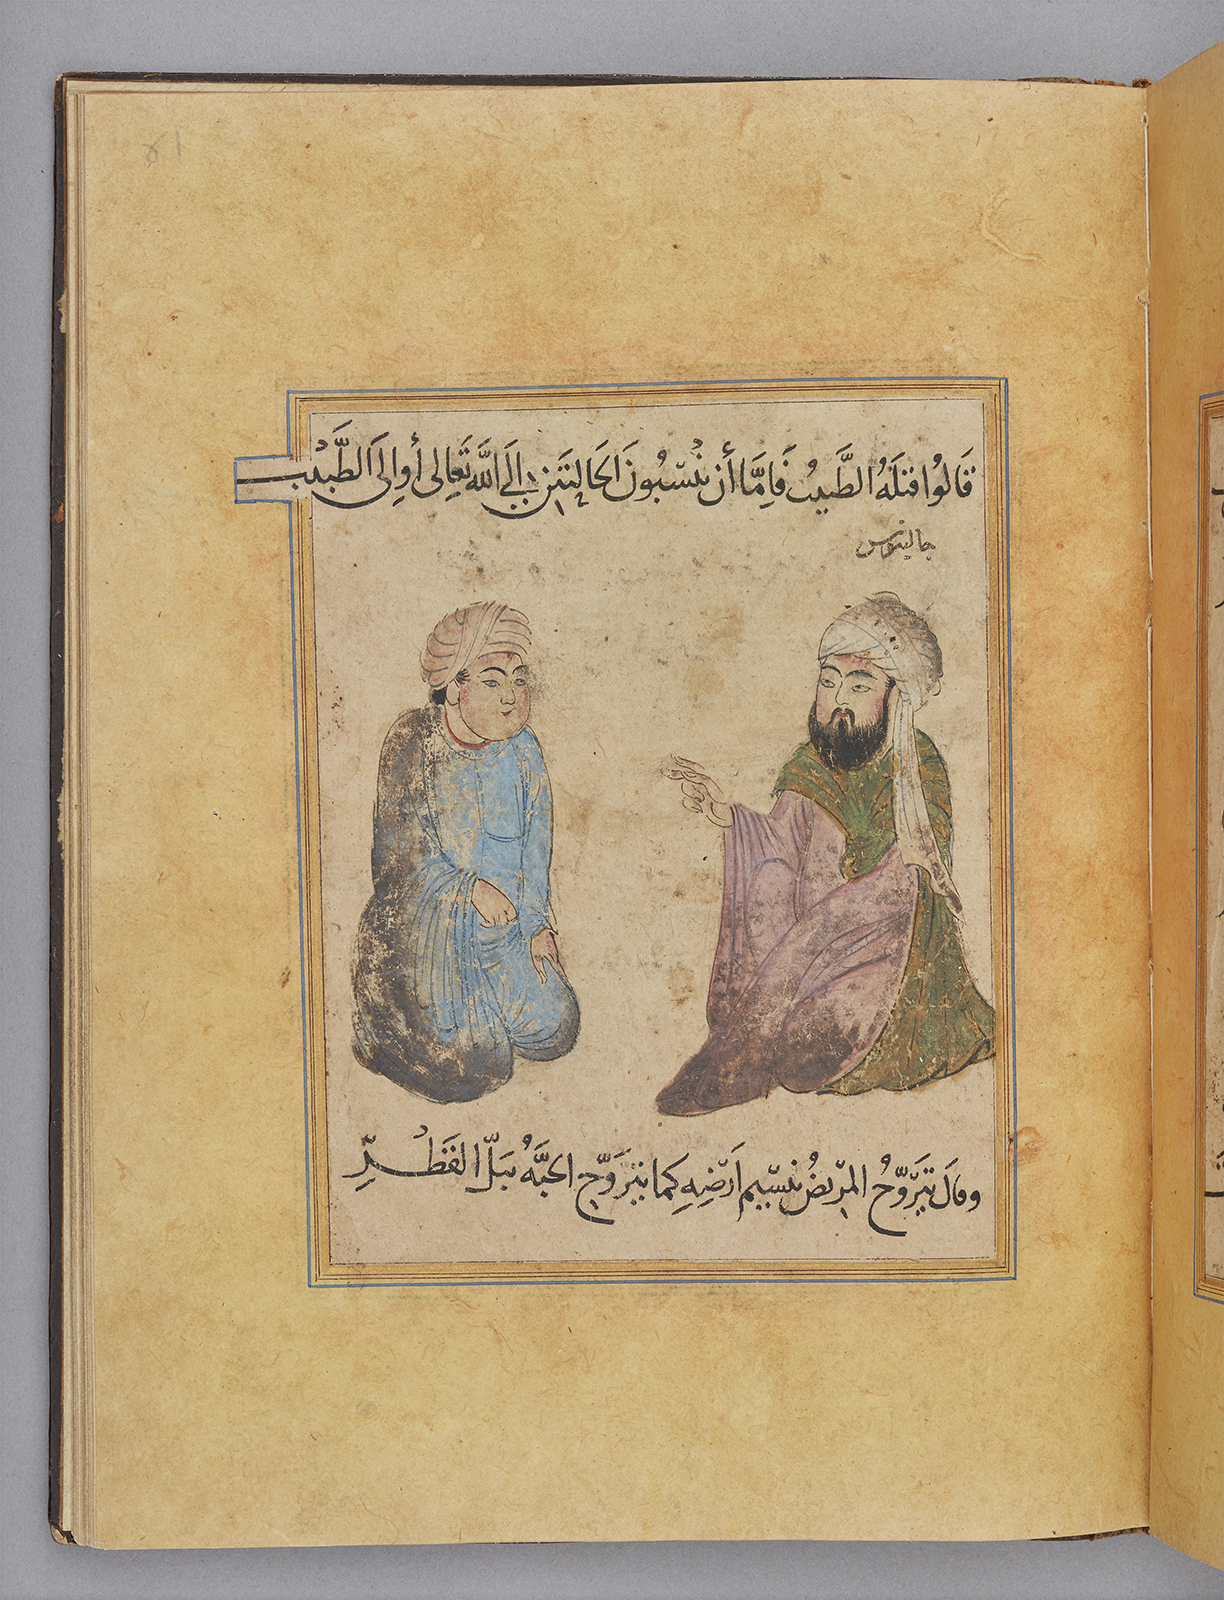 قَالُوا قتلَهُ الطَّبيبُ فَإِمَّا أن نُسِّبُونَ الحالتين إلَى اللَّه تَعَالى أَوِ الَى الطَّبيب
جالينوس
وقالَ يَتَرَوَّحُ المرّيضُ بنسِّيم اَرضِهِ كما تتَرَوَّح الحبَّهُ ببَلِّ القَطْرِ